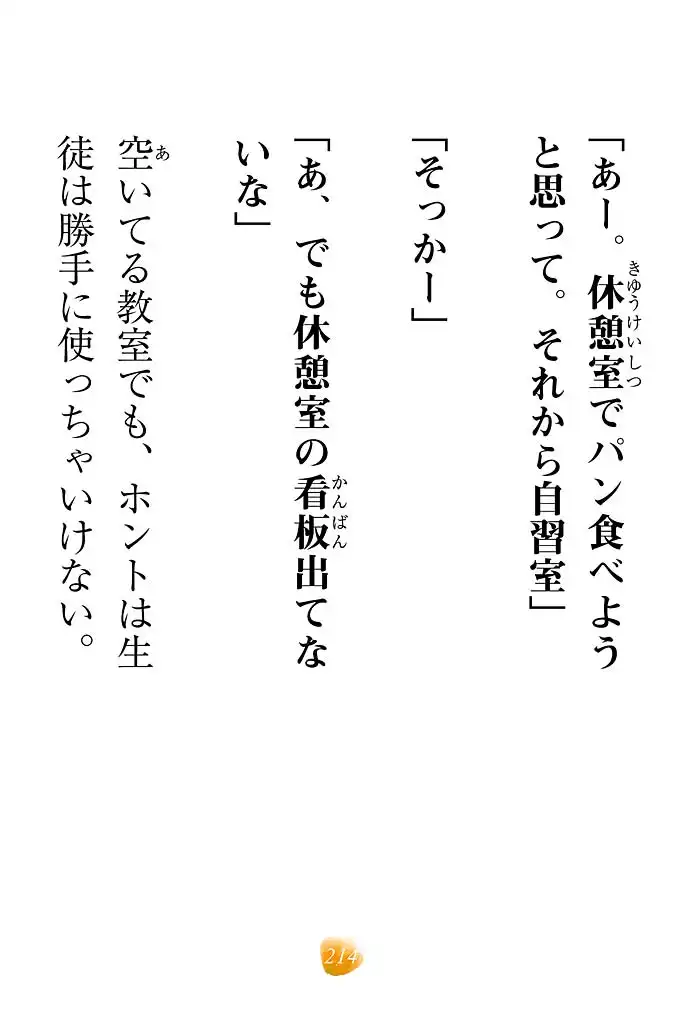 「あー。休憩室でパン食べよう
と思って。それから自習室」
「そっかー」
「あ、でも休憩室の看板出てな
いな」
空いてる教室でも、ホントは生
徒は勝手に使っちゃいけない。
きゆうけいしつ
かんばん
あ
214